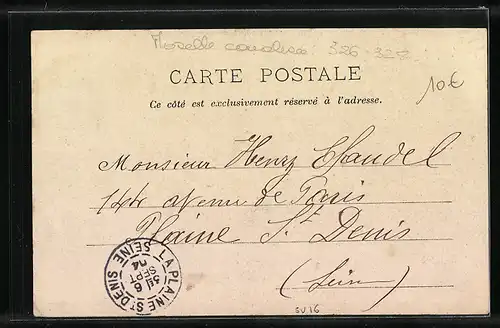 Moselle 326-328
CARTE POSTALE
10€
Ce côté est exclusivement réservé à l'adresse.
Monsieur Henry
144 avenue de Paris
Plaine St Denis
(Seine)
LA PLAINE ST DENIS SEINE
3E 6
SEPT
04
SU16